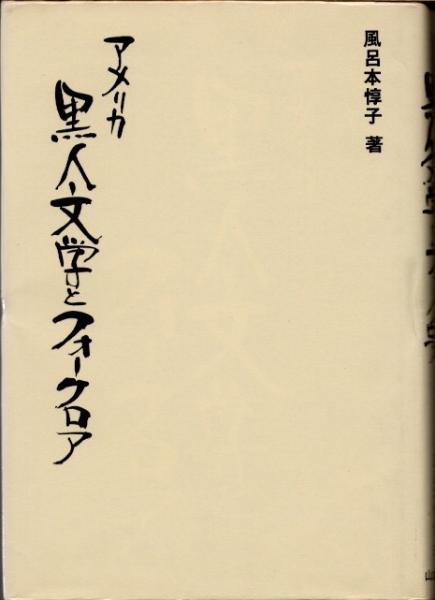 風呂本惇子 著
アメリカ
黒人文学とフォークロア